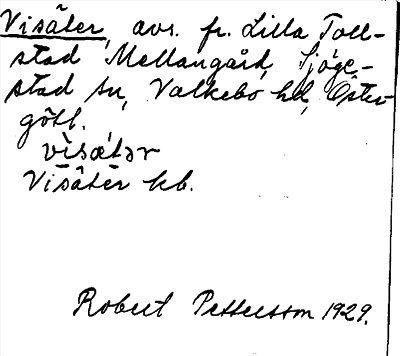 Visäter, avs. fr. Lilla Toll-
stad Mellangård, Sjöge-
stad sn, Valkebo hd, Öster-
götl.
visätər
Visäter kb.
Robert Pettersson 1929.